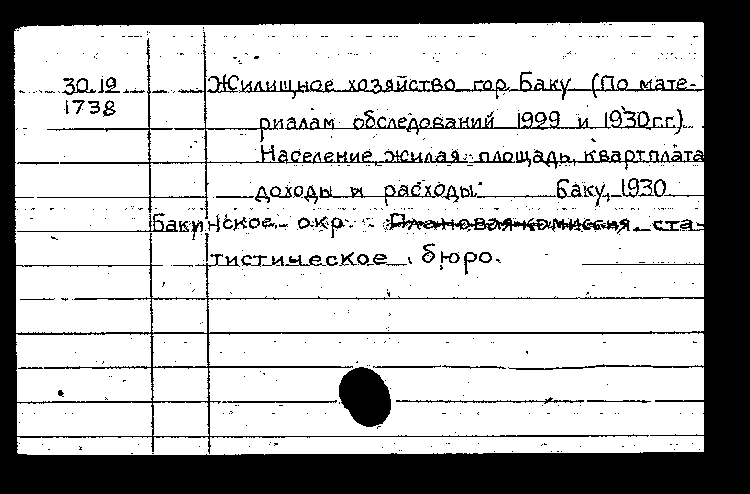 30.19 Жилищное хозяйство гор. Баку (По мате-
1738
риалам обследований 1929 и 1930 г.г.)
Население, жилая площадь, квартплата
доходы и расходы. Баку, 1930
Бакинское окр. Плановая комиссия. ста-
тистическое бюро.